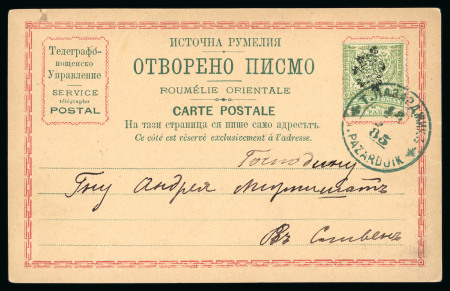 Телеграфо-
пощенско
Управление
SERVICE
télégrapho
POSTAL
ИСТОЧНА РУМЕЛИЯ
ОТВОРЕНО ПИСМО
ROUMÉLIE ORIENTALE
CARTE POSTALE
На тази страница ся пише само адресътъ.
Ce côté est réservé exclusivement à l'adresse.
85
PAZARDJIK
Господину
Гну Андрея
Въ Сливенъ